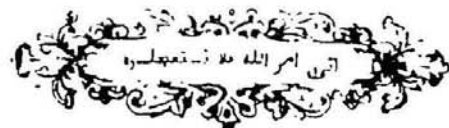 اتى امر الله فلا تستعجلوه